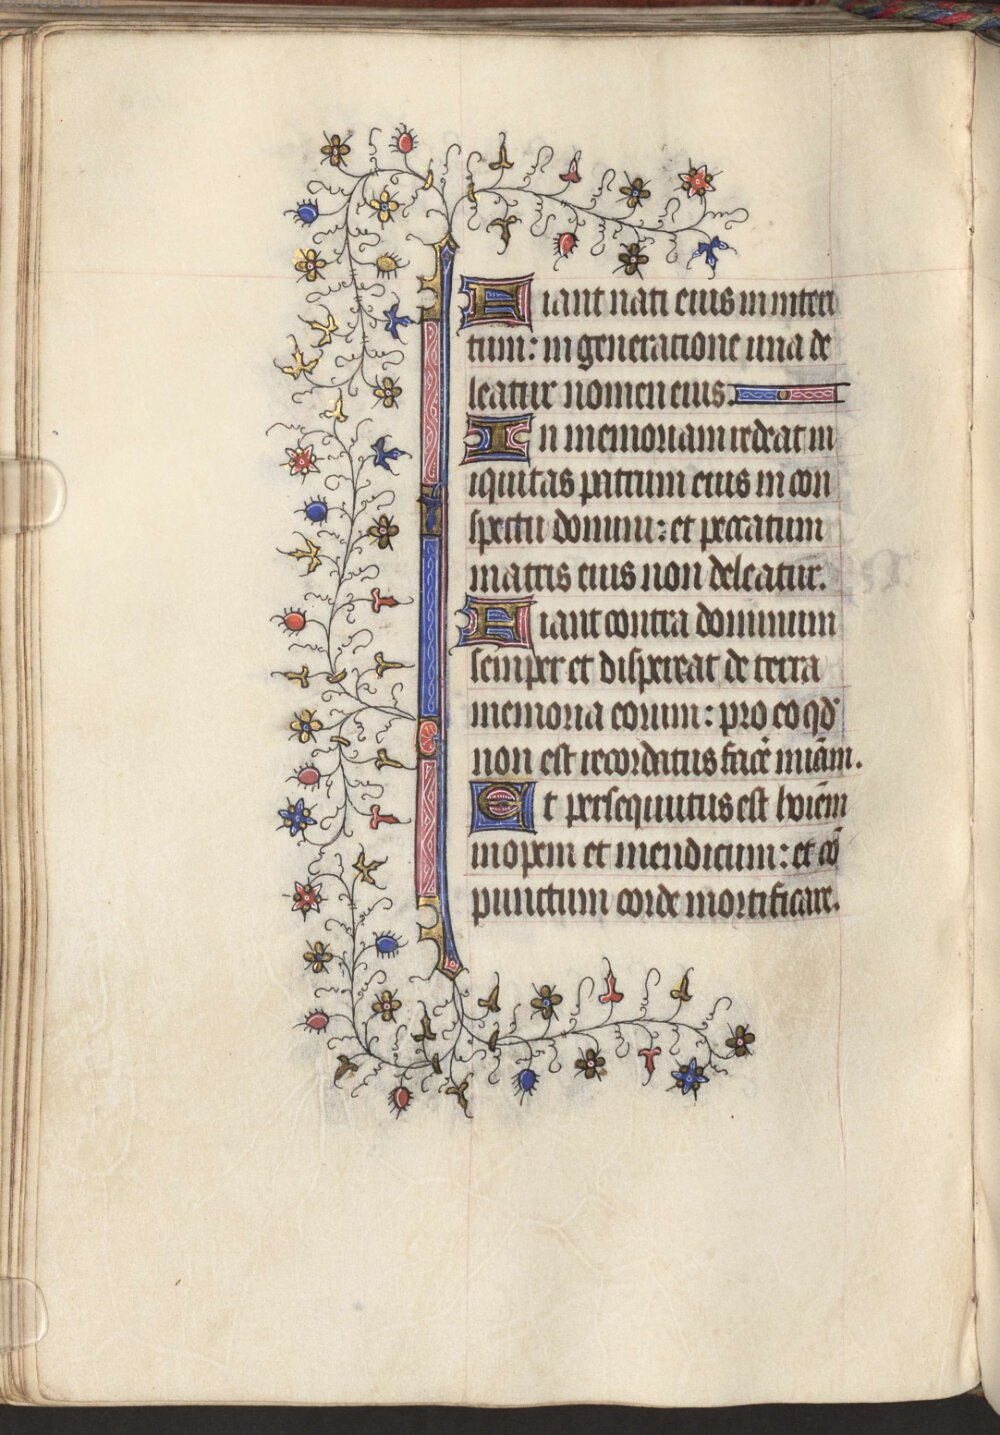 Fiant nati eius in interi
tum: in generatione una de
leatur nomen eius.
In memoriam redeat in
iquitas patrum eius in con
spectu domini: et peccatum
matris eius non deleatur.
Fiant contra dominum
semper et dispereat de terra
memoria eorum: pro eo qd̕
non est recordatus facē miām.
Et persequutus est hoiēm
inopem et mendicum: et cō
punctum corde mortificare.